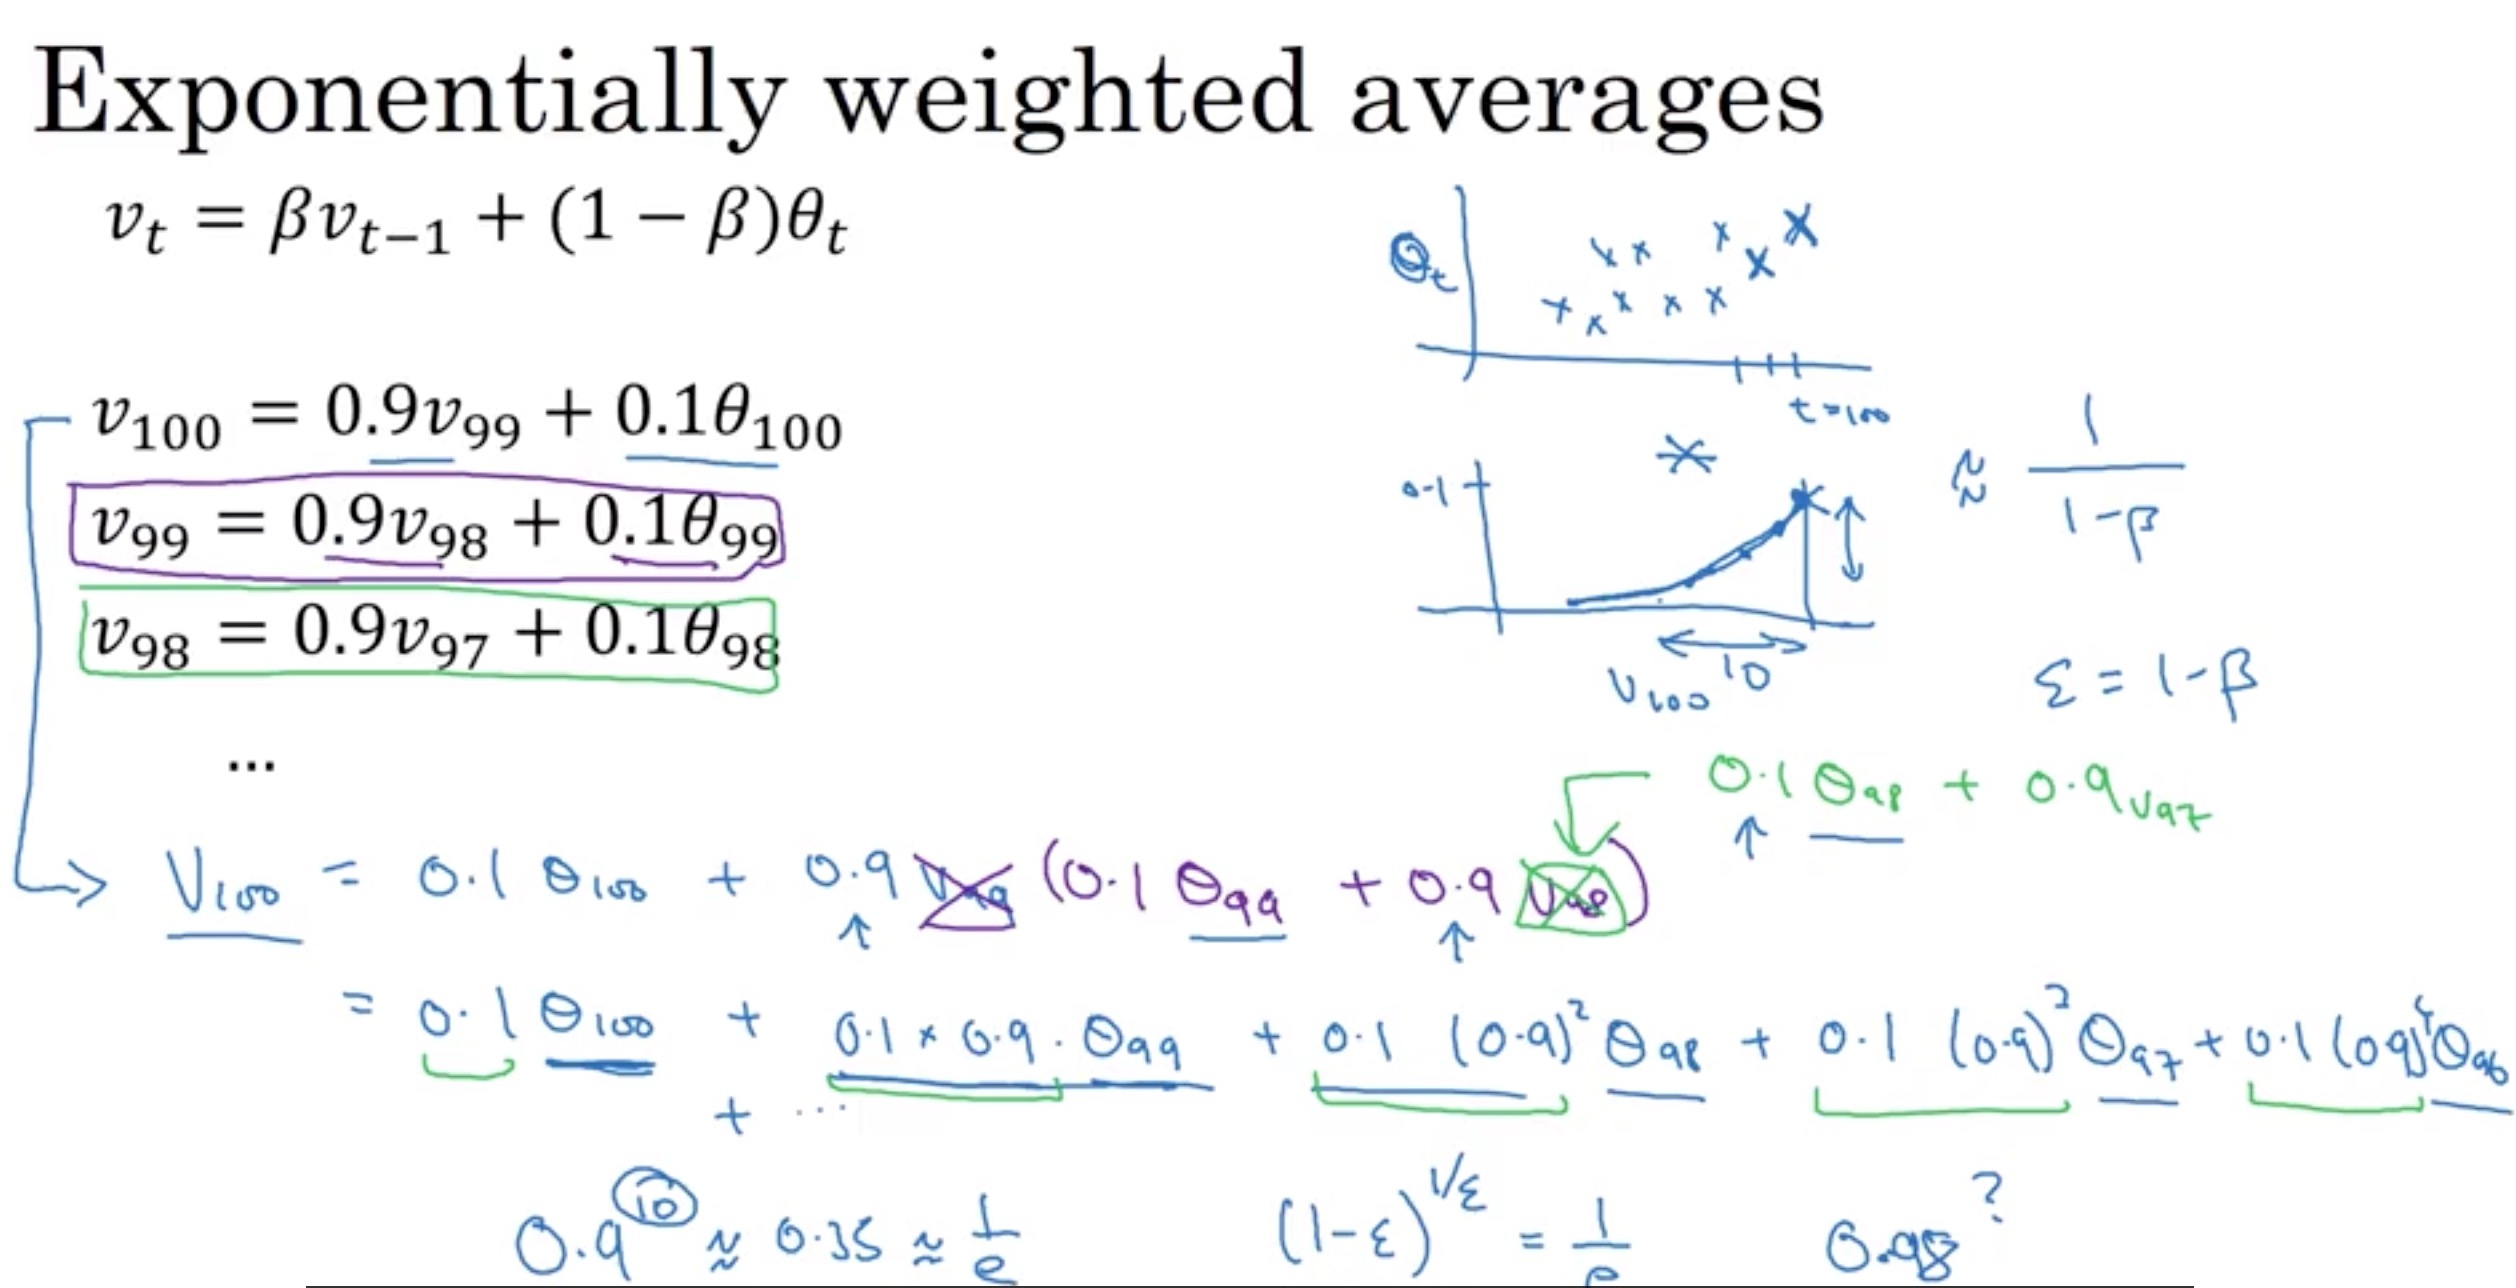 Exponentially weighted averages
v_t = βv_{t−1} + (1 − β)θ_t
θ_t
t=100
v_100 = 0.9v_99 + 0.1θ_100
v_99 = 0.9v_98 + 0.1θ_99
v_98 = 0.9v_97 + 0.1θ_98
...
0.1
10
V_100
≈ 1/(1-β)
ε = 1-β
0.1 θ_98 + 0.9 v_97
V_100 = 0.1 θ_100 + 0.9 V_99 (0.1 θ_99 + 0.9 V_98)
= 0.1 θ_100 + 0.1 × 0.9 · θ_99 + 0.1 (0.9)² θ_98 + 0.1 (0.9)³ θ_97 + 0.1 (0.9)⁴ θ_96
+ ...
0.9^10 ≈ 0.35 ≈ 1/e
(1-ε)^{1/ε} = 1/e
0.98^?